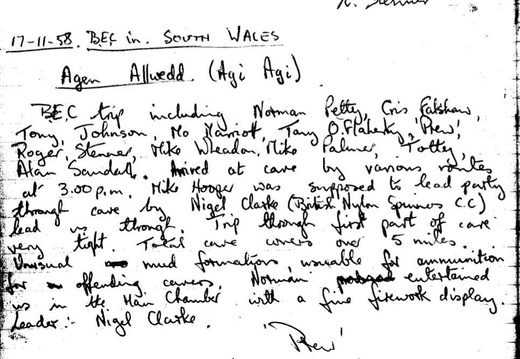 R. Stenner
17-11-58. BEC in. SOUTH WALES
Agen Allwedd. (Agi Agi)
BEC trip including Norman Petty, Cris Falshaw,
Tony Johnson, Mo Marriott, Tony O'Flaherty, 'Prew',
Roger Stenner, Mike Wheadon, Mike Palmer, Totty,
Alan Sandall. Arrived at cave by various routes
at 3.00 p.m. Mike Hooger was supposed to lead party
through cave by Nigel Clarke (British Nylon Spinners C.C)
lead us through. Trip through first part of cave
very tight. Total cave covers over 5 miles.
Unusual mud formations, usuable for ammunition
for offending cavers. Norman entertained
us in the Main Chamber with a fine firework display.
Leader:- Nigel Clarke.
'Prew'